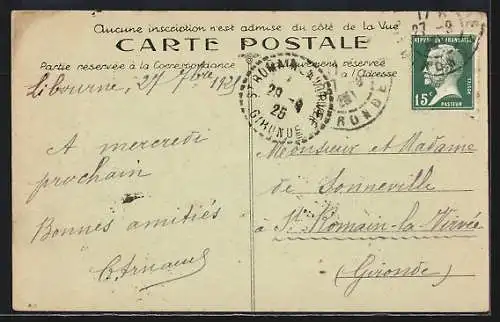 Aucune inscription n'est admise du côté de la Vue
CARTE POSTALE
Partie réservée à la Correspondance
réservée
à l'Adresse
Libourne, 27 7bre 1925
A mercredi
prochain
Bonnes amitiés
ST ROMAIN-LA-VIRVEE
29-9
25
GIRONDE
GIRONDE
27-9
REPUBLIQUE FRANCAISE
15c
POSTES
PASTEUR
Monsieur et Madame
de Sonneville
à St Romain-la-Virvée
(Gironde)